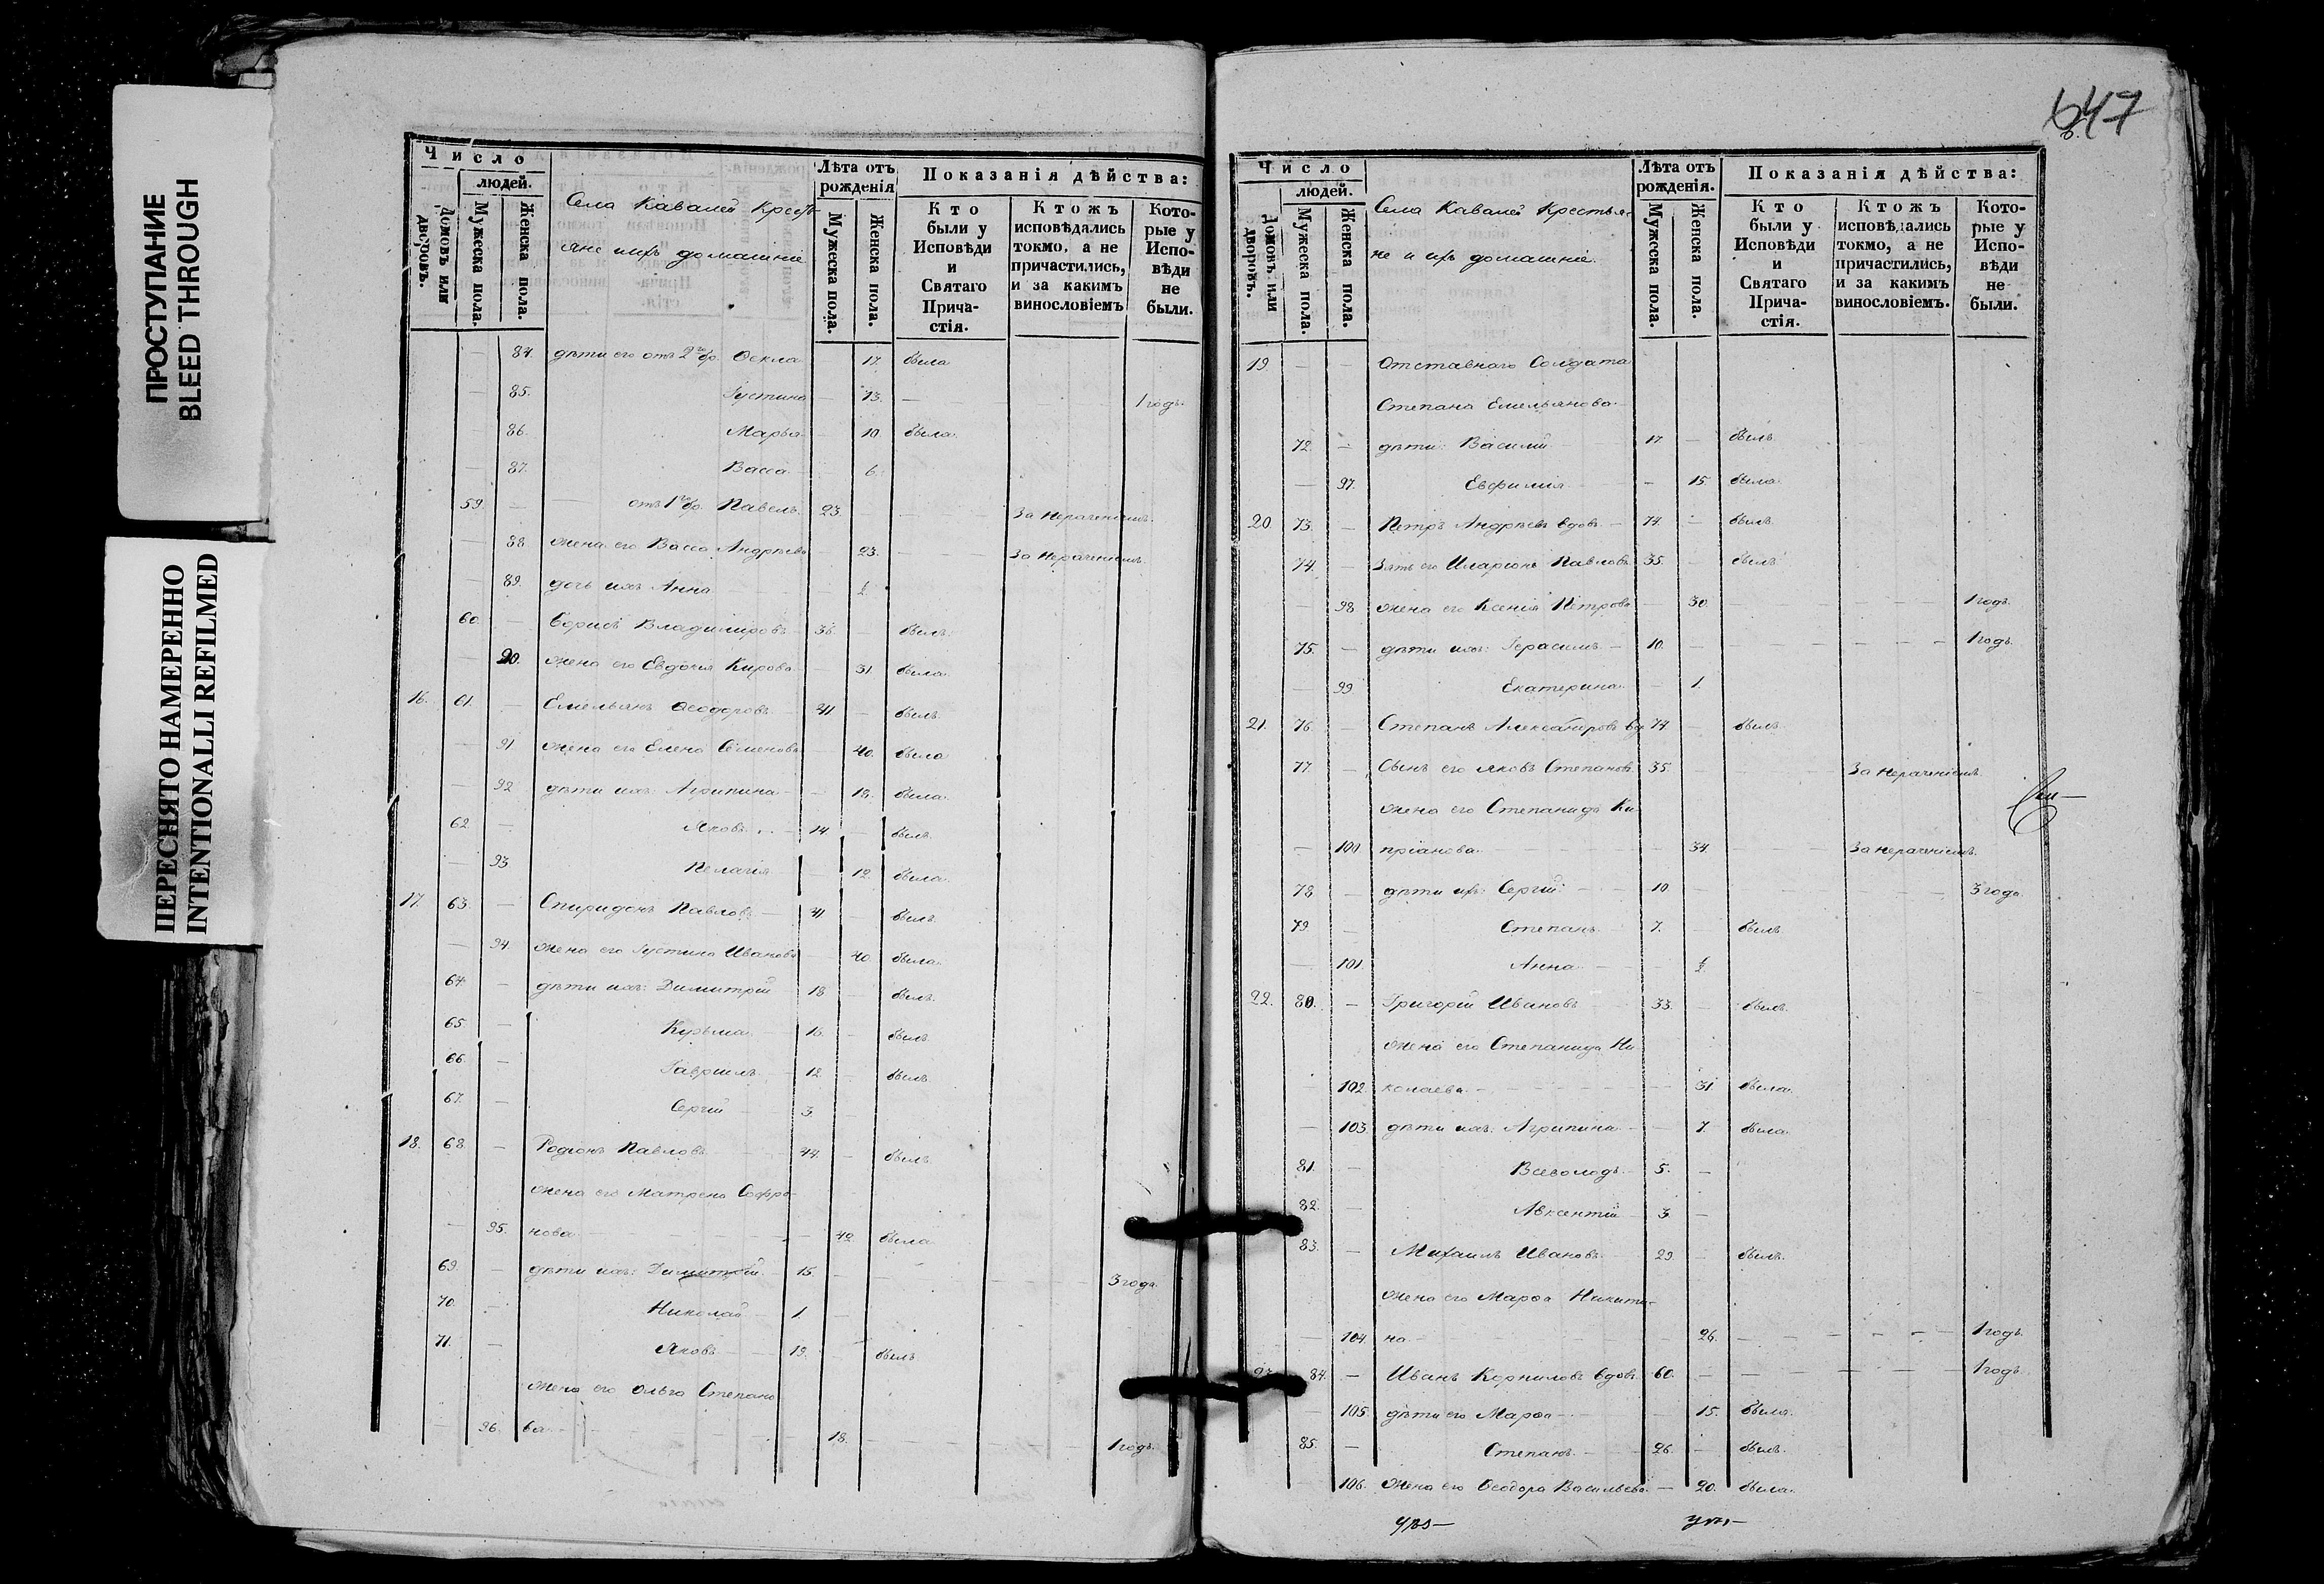 ПРОСТУПАНИЕ
BLEED THROUGH
ПЕРЕСНЯТО НАМЕРЕННО
INTENTIONALLI REFILMED
Число
людей.
Домовъ или дворовъ.
Мужеска пола.
Женска пола.
Села Кавалей Крестъ-
яне и ихъ домашніе
Лѣта отъ рожденія
Мужеска пола.
Женска пола.
Показанія дѣйства:
Кто были у Исповѣди и Святаго Прича-стія.
Ктожъ исповѣдались токмо, а не причастились, и за какимъ винословіемъ
Кото-рые у Испо-вѣди не были.
— 84. дѣти его отъ 2го бр. Ѳекла 17. была
— 85. Іустина — 13. — 1 годъ.
— 86. Марья — 10 была.
— 87. Васса — 6.
59. — отъ 1го бр. Павелъ 23. — За нераченіемъ.
— 88 жена его Васса Андрѣева 23. — За нераченіемъ.
— 89. дочь ихъ Анна
60. — Борисъ Владиміровъ 36. — былъ.
— 90. жена его Евдокія Кирова — 31 была.
16. 61. — Емельянъ Ѳеодоровъ 41. — былъ.
— 91 жена его Елена Семенова 40. была
— 92 дѣти ихъ: Агрипина — 18. была.
62. — Яковъ — 14 — былъ.
— 93 Пелагія 12. была.
17. 63. — Спиридонъ Павловъ — 41 — былъ.
— 94 жена его Іустина Иванова 40 была.
64. — дѣти ихъ: Димитрій 18 — былъ.
65. — Кузьма — 15. — былъ
66. — Гавріилъ — 12. — былъ
67. — Сергій — 3
18. 68. — Родіонъ Павловъ 44. — былъ.
жена его Матрена Софро-
— 95. нова — 42 была
69. — дѣти ихъ: Димитрій — 15. — 3 года.
70. — Николай — 1. —
71. — Яковъ — 19. былъ
жена его Ольга Степано
— 96. ва. — 18. — 1 годъ.
647
Число
людей.
Домовъ или дворовъ.
Мужеска пола.
Женска пола.
Села Кавалей Крестья-
не и ихъ домашніе.
Лѣта отъ рожденія.
Мужеска пола.
Женска пола.
Показанія дѣйства:
Кто были у Исповѣди и Святаго Прича-стія.
Ктожъ исповѣдались токмо, а не причастились, и за какимъ винословіемъ.
Кото-рые у Испо-вѣди не были.
19 — — Отставнаго Солдата
Степана Емельянова —
72. — дѣти: Василій 17 — былъ
— 97. Евфимія — 15. была.
20. 73. — Петръ Андрѣевъ вдовъ — 74. — былъ.
74. — Зять его Иларіонъ Павловъ 35. — былъ
— 98 жена его Ксенія Петрова — 30. — 1 годъ.
75. — дѣти ихъ: Герасимъ — 10. — 1 годъ.
— 99 Екатерина — 1.
21. 76. — Степанъ Александровъ вд. 74 — былъ.
77. — Сынъ его Яковъ Степановъ 35. — За нераченіемъ
жена его Степанида Ки
— 100 пріанова. — 34. — За нераченіемъ.
78 — дѣти ихъ: Сергій: — 10 — 3 года
79. — Степанъ — 7. — былъ
— 101. Анна — ½
22. 80. — Григорій Ивановъ 33. — былъ.
жена его Степанида Ни
— 102. колаева — 31 была.
— 103. дѣти ихъ: Агрипина — 7. была.
81. — Всеволодъ — 5. —
82. — Авксентій — 3. —
83. — Михаилъ Ивановъ — 29. — былъ.
жена его Марѳа Никити-
— 104. на — 26. — 1 годъ.
23. 84. — Иванъ Корниловъ вдовъ. 60. — 1 годъ
— 105. дѣти его Марѳа — 15. была.
85. — Степанъ — 26. — былъ.
— 106. жена его Ѳеодора Васильева — 20. была.